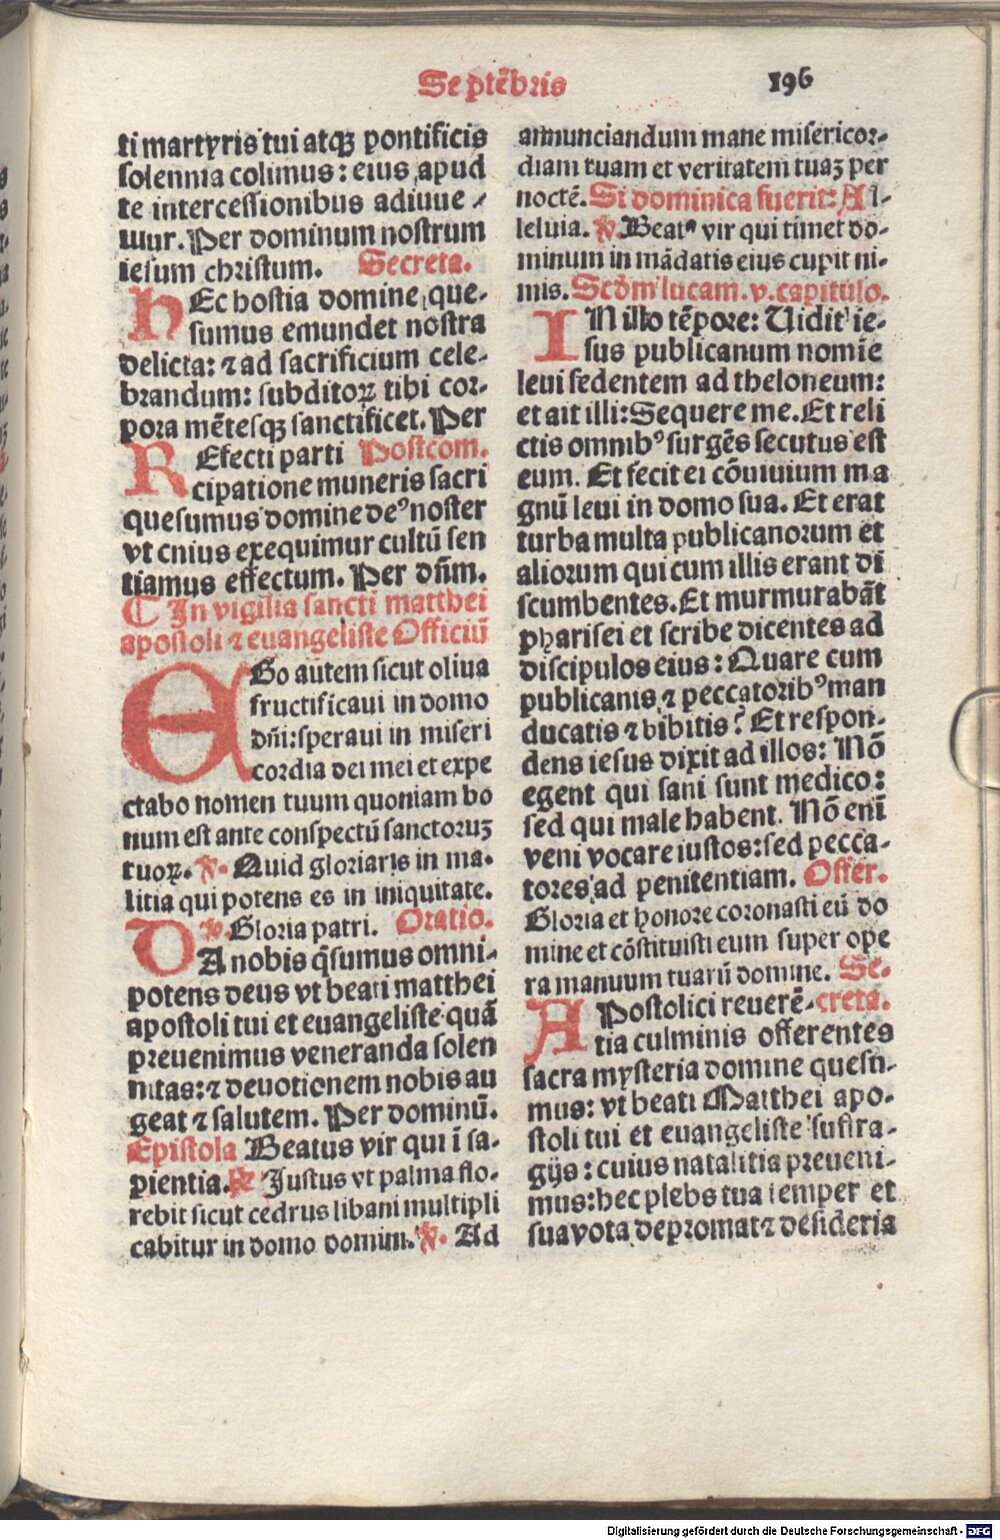 Septẽbris 196
ti martyris tui atqꝫ pontificis
solennia colimus: eius apud
te intercessionibus adiuue⸗
mur. Per dominum nostrum
iesum christum. Secreta.
HEc hostia domine que-
sumus emundet nostra
delicta: ⁊ ad sacrificium cele-
brandum: subditoꝝ tibi cor-
pora mẽtesqꝫ sanctificet. Per
REfecti parti Postcom.
cipatione muneris sacri
quesumus domine deꝰ noster
vt cuius exequimur cultũ sen
tiamus effectum. Per dñm.
¶ In vigilia sancti matthei
apostoli ⁊ euangeliste Officiũ
EGo autem sicut oliua
fructificaui in domo
dñi: speraui in miseri
cordia dei mei et expe
ctabo nomen tuum quoniam bo
num est ante conspectũ sanctoruꝫ
tuoꝝ. ℣. Quid gloriaris in ma-
litia qui potens es in iniquitate.
℣. Gloria patri. Oratio.
DA nobis q̃sumus omni-
potens deus vt beati matthei
apostoli tui et euangeliste quã
preuenimus veneranda solen
nitas: ⁊ deuotionem nobis au
geat ⁊ salutem. Per dominũ.
Epistola Beatus vir qui ĩ sa-
pientia. ℟ Justus vt palma flo-
rebit sicut cedrus libani multipli
cabitur in domo domini. ℣. Ad
annunciandum mane misericor-
diam tuam et veritatem tuaꝫ per
noctẽ. Si dominica fuerit: Al-
leluia. ℣. Beatꝰ vir qui timet do-
minum in mãdatis eius cupit ni-
mis. Scd̃m lucam. v. capitulo.
IN illo tẽpore: Uidit ie-
sus publicanum nomĩe
leui sedentem ad theloneum:
et ait illi: Sequere me. Et reli
ctis omnibꝰ surgẽs secutus est
eum. Et fecit ei cõuiuium ma
gnũ leui in domo sua. Et erat
turba multa publicanorum et
aliorum qui cum illis erant di
scumbentes. Et murmurabãt
pharisei et scribe dicentes ad
discipulos eius: Quare cum
publicanis ⁊ peccatoribꝰ man
ducatis ⁊ bibitis? Et respon-
dens iesus dixit ad illos: Nõ
egent qui sani sunt medico:
sed qui male habent. Nõ enĩ
veni vocare iustos: sed pecca-
tores ad penitentiam. Offer.
Gloria et honore coronasti eũ do
mine et cõstituisti eum super ope
ra manuum tuarũ domine. Se-
APostolici reuerẽ- creta.
tia culminis offerentes
sacra mysteria domine quesu-
mus: vt beati Matthei apo-
stoli tui et euangeliste suffra-
gijs: cuius natalitia preueni-
mus: hec plebs tua semper et
sua vota depromat ⁊ desideria
Digitalisierung gefördert durch die Deutsche Forschungsgemeinschaft - DFG